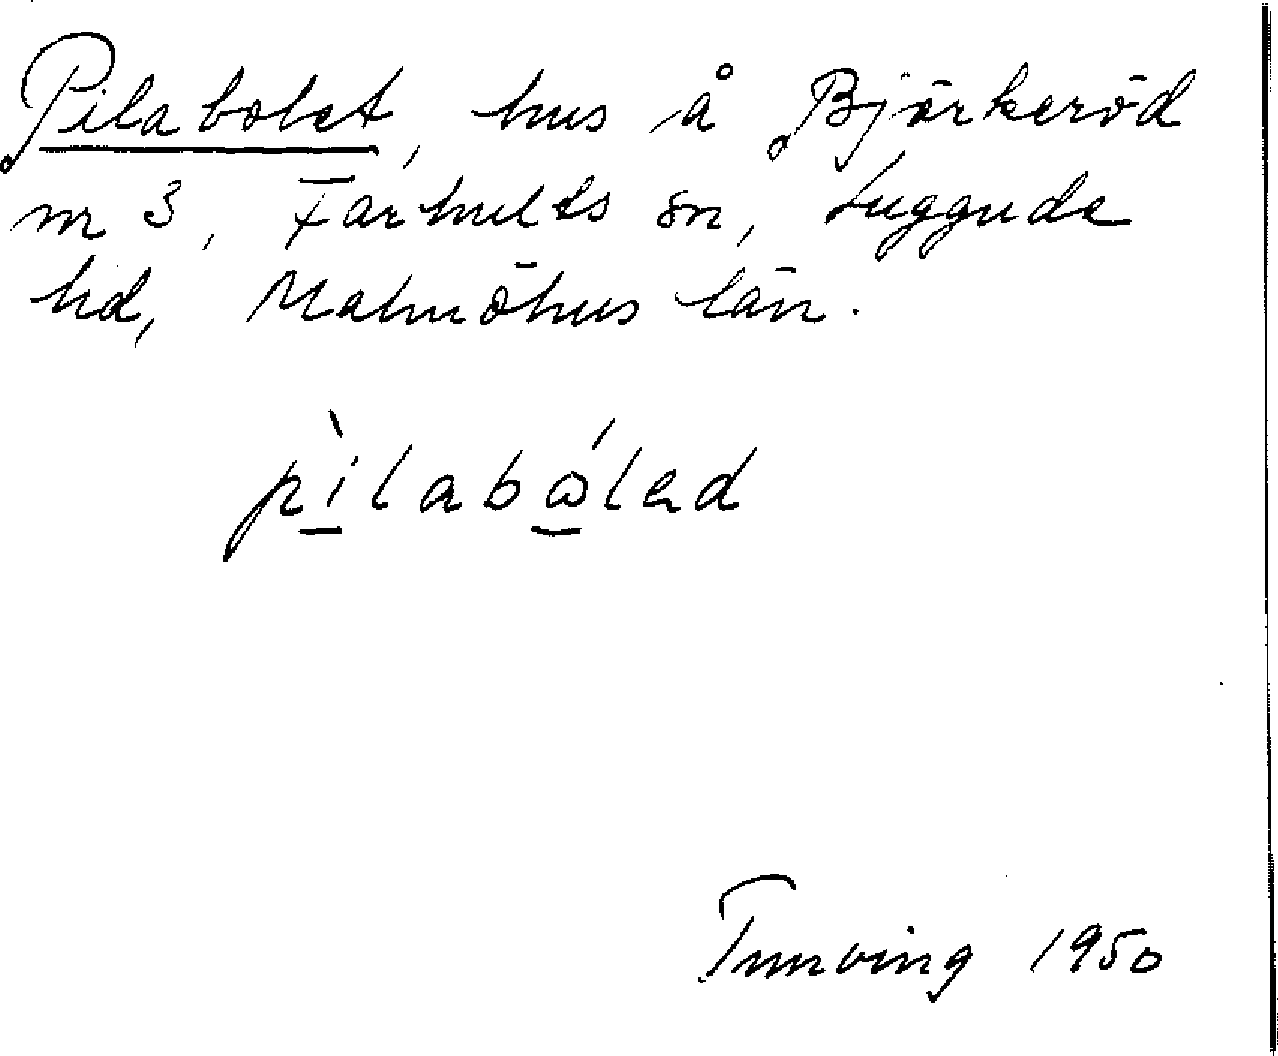 Pilabolet, hus å Björkeröd
nr 3, Farhults sn, Luggude
hd, Malmöhus län.
pìlabώlad
Tunving 1950